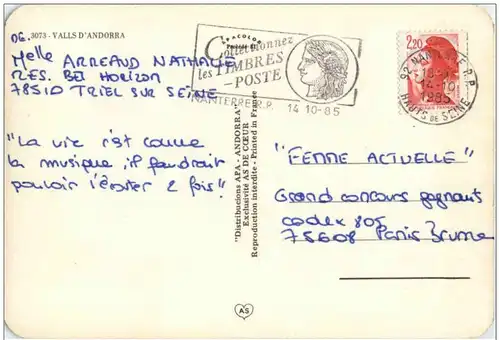 DE.
3073 - VALLS D'ANDORRA
Melle ARREAUD NATHALIE
RES. BEL HORIZON
78510 TRIEL SUR SEINE
"La vie c'est comme
la musique, il faudrait
pouvoir l'écouter 2 fois"
Collectionnez
les TIMBRES
-POSTE
NANTERRE R.P. 14 10-85
2,20
92 NANTERRE R.P.
1985
HAUTS DE SEINE
"Distribucions APA - ANDORRA"
Exclusivité AS DE CŒUR
Reproduction interdite - Printed in France
"FEMME ACTUELLE"
Grand concours gagnant
codex 805
75608 Paris Brune
AS